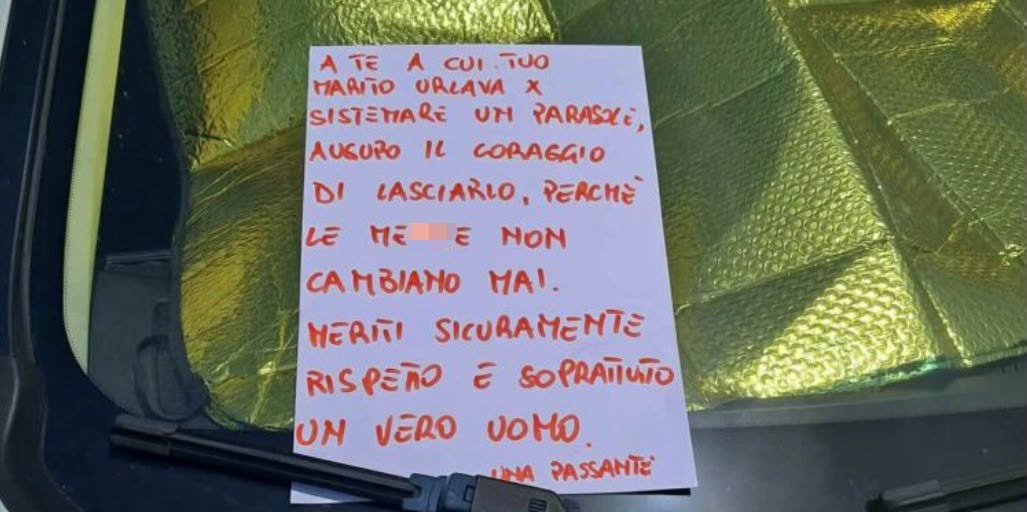 A TE A CUI TUO
MARITO URLAVA X
SISTEMARE UN PARASOLE,
AUGURO IL CORAGGIO
DI LASCIARLO, PERCHÈ
LE NON
CAMBIANO MAI.
MERITI SICURAMENTE
RISPETTO E SOPRATTUTTO
UN VERO UOMO.
UNA PASSANTE